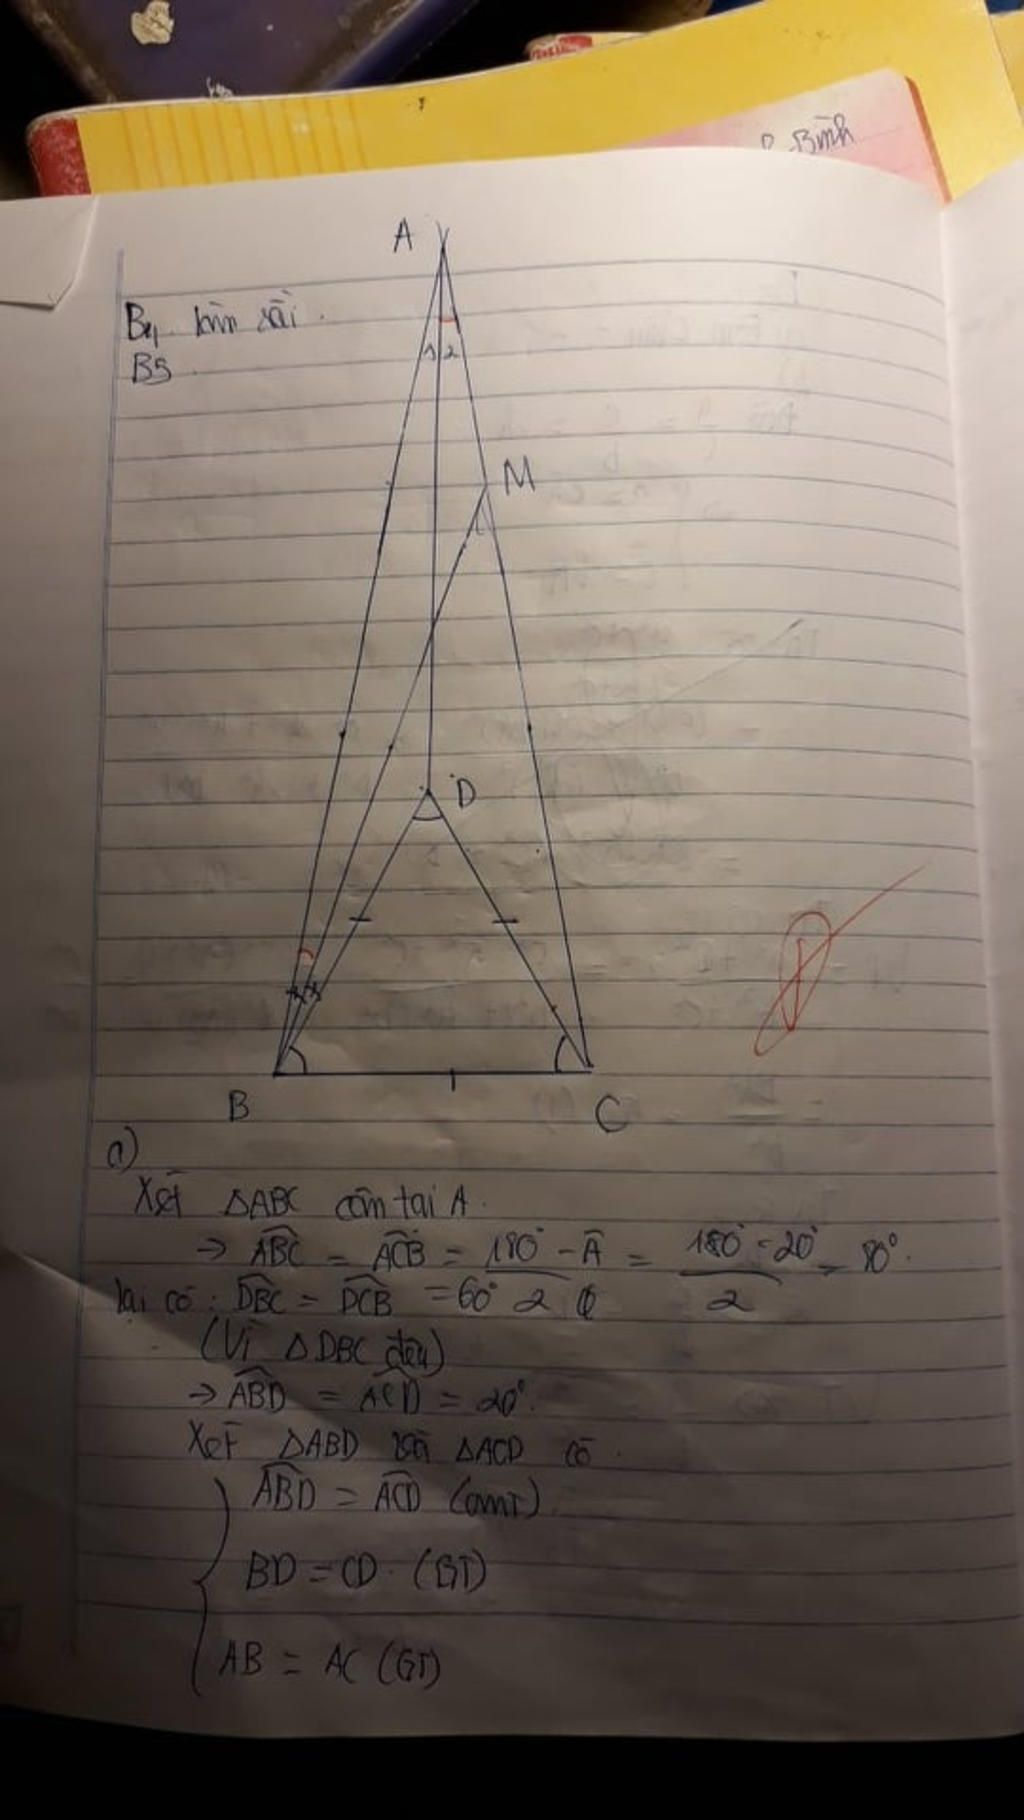 Bình
A
B4 làm rồi.
B5
1 2
M
D
B
C
a)
Xét ΔABC cân tại A.
→ ABC = ACB = 180° - A / 2 = 180° - 20° / 2 = 80°.
lại có : DBC = DCB = 60°
(Vì ΔDBC đều)
→ ABD = ACD = 20°.
Xét ΔABD và ΔACD có
ABD = ACD (cmt)
BD = CD (GT)
AB = AC (GT)